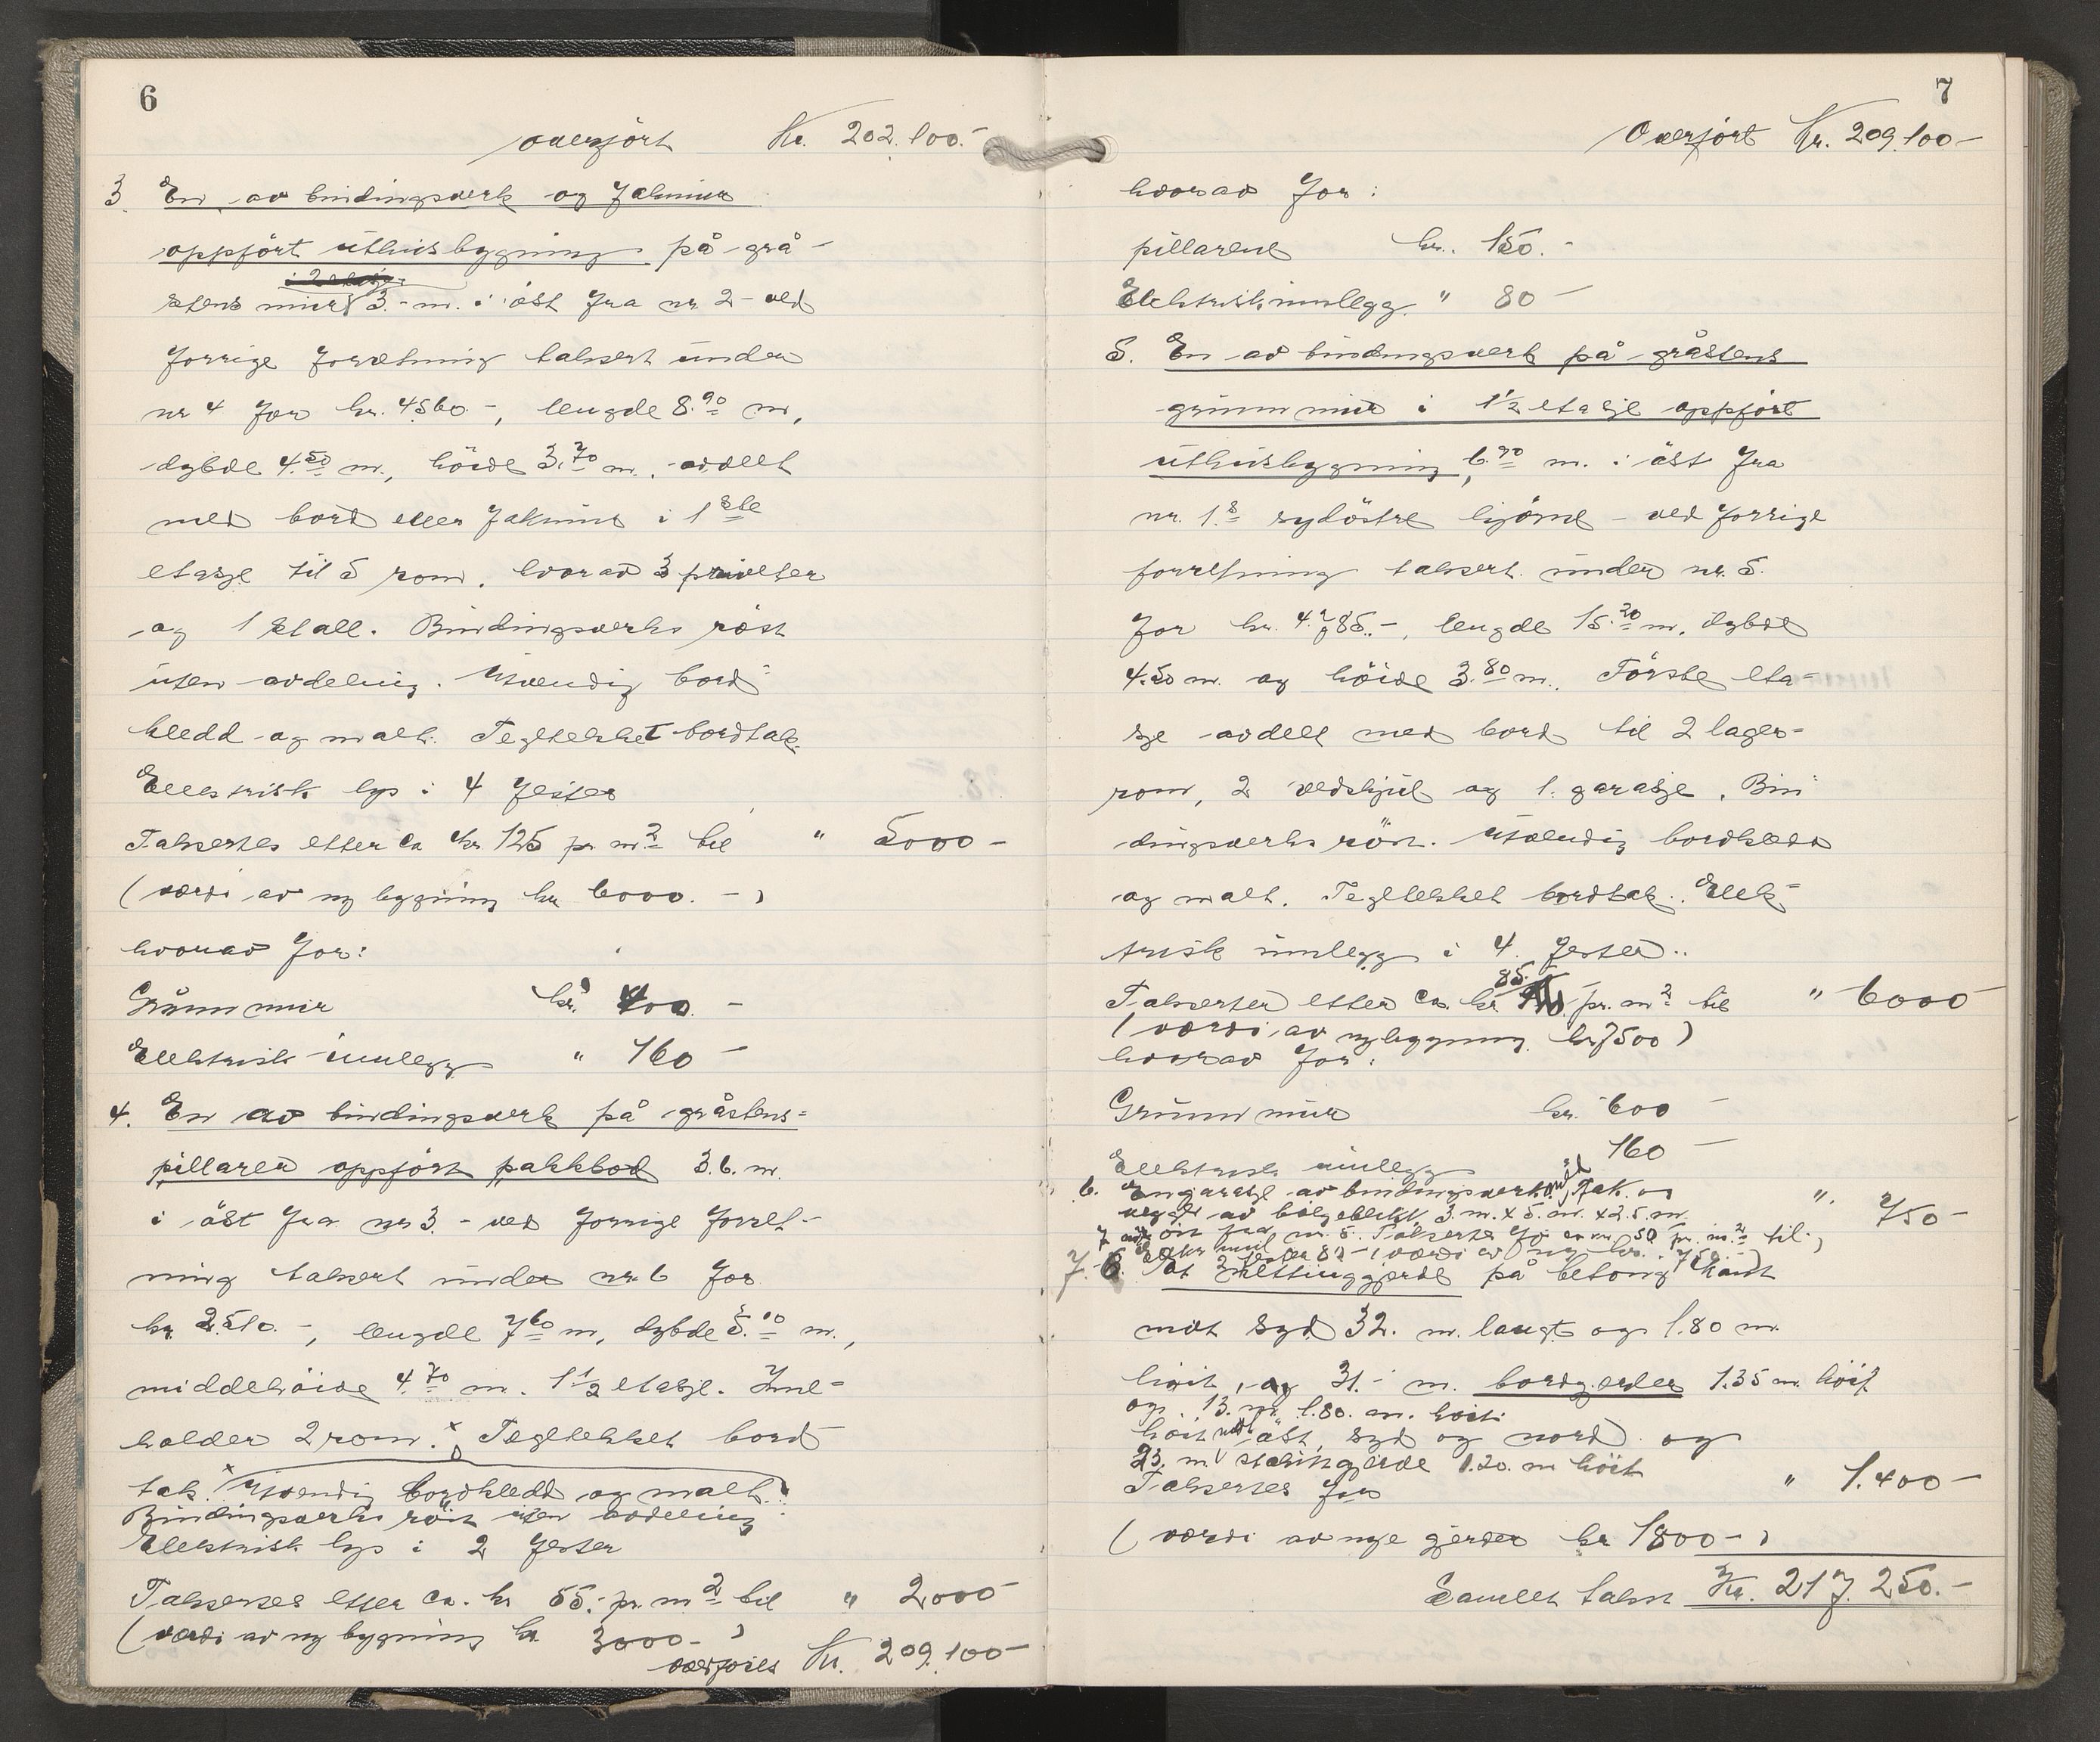 6
overført Kr. 202.100.-
3. En av bindingsverk og fakmur
oppført uthusbygning på grå-
stens mur 3.- m. i øst fra nr 2 - ved
forrige forretning taksert under
nr 4 for kr. 4560.-, lengde 8.90 m,
dybde 4.50 m., höide 3.70 m. avdelt
med bord eller fakmur i 1ste
etasje til 5 rom, hvorav 3 priveter
og 1 stall. Bindingsverks röst
uten avdeling. Utvendig bord-
kledd og malt. Tegltekket bordtak.
Elektrisk lys i 4 fester
Takseres efter ca kr 125 pr m2 til " 5000-
(værdi av ny bygning kr 6000.-)
hvorav for:
Grunnmur kr. 400.-
Elektrisk innlegg " 160-
4. En av bindingsverk på gråstens-
pillarer oppført pakkbod 3.6. m.
i øst fra nr 3 - ved forrige forret-
ning taksert under nr. 6 for
kr 2.510.-, lengde 7.60 m, dybde 5.10 m.,
middelhöide 4.70 m. 1 1/2 etasje. Inne-
holder 2 rom. x Tegltekket bord
tak. x Utvendig bordkledd og malt.
Bindingsverks röst uten avdeling
Elektrisk lys i 2 fester
Takseres efter ca. kr 55.- pr. m2 til " 2000-
(værdi av ny bygning kr. 3000-)
overføres Kr. 209.100-
7
Overført Kr. 209.100-
hvorav for:
pillarene kr. 150.-
Elektrisk innlegg. " 80-
5. En av bindingsverk på gråstens
grunnmur i 1 1/2 etasje oppført
uthusbygning, 6.90 m. i øst fra
nr. 1.s sydöstre hjörne - ved forrige
forretning taksert under nr. 5.
for kr. 4.785.-, lengde 15.20 m. dybde
4.50 m. og höide 3.80 m. Förste eta-
sje avdelt med bord til 2 lager-
rom, 2 vedskjul og 1. garasje. Bin-
dingsverks röst. Utvendig bordkledd
og malt. Tegltekket bordtak. Elek-
trisk innlegg i 4 fester.
Takseres efter ca. kr 85.- pr. m2 til " 6000-
(værdi av ny bygning kr 7500)
hvorav for:
Grunnmur kr. 600-
Elektrisk innlegg 160-
6. En garasje av bindingsverk med tak og
vegger av bölgeblikk 3. m. x 5. m. x 2.5. m. " 750-
7 m öst fra nr. 5. Takseres for ca kr. 50 pr. m2 til
7. Et nettinggjerde på betong kant
mot syd 32. m. langt og 1.80 m.
höit, og 31.- m. bordgjerder 1.35 m. höit
og 13. m 1.80. m. höit
höit mot öst, syd og nord og
23. m stakittgjerde 1.20. m höit
Takseres for " 1.400-
(værdi av nye gjerder kr 1800-)
Samlet takst Kr. 217.250.-